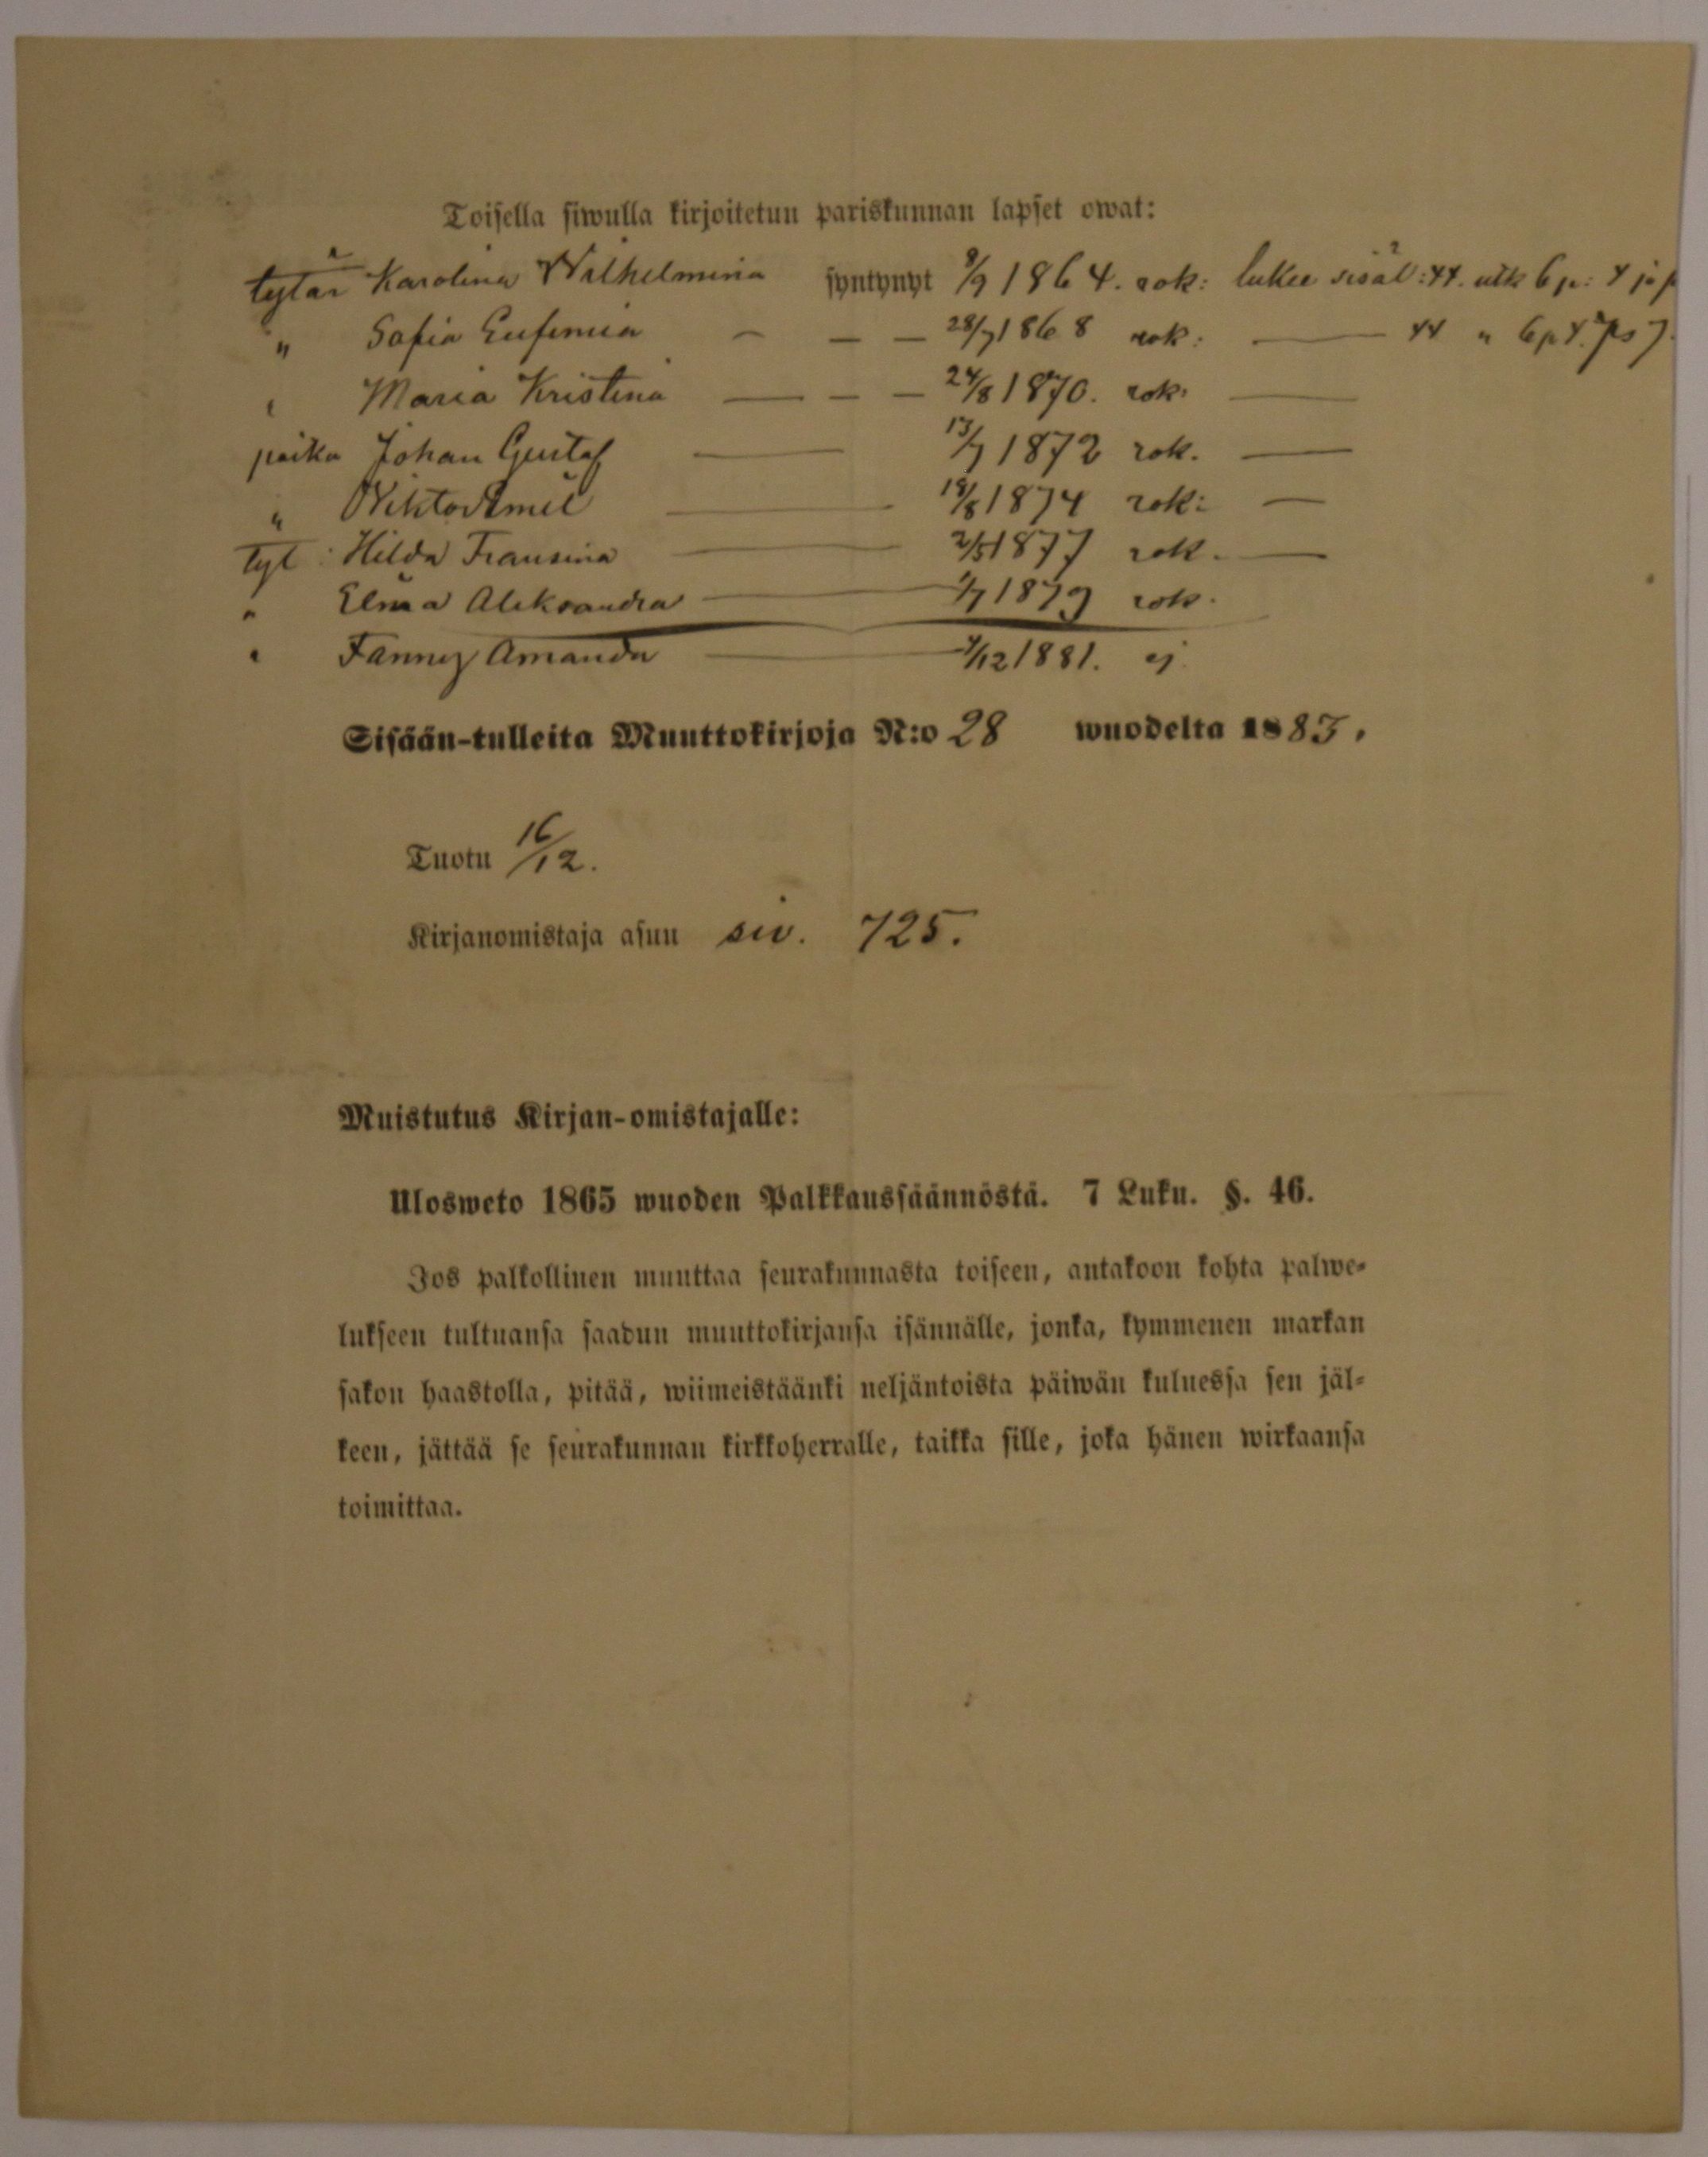 Toisella siwulla kirjoitetun pariskunnan lapset owat:
tytär Karolina Wilhelmina syntynyt 8/9 1864. rok: lukee sisäl: 44. utk 6 p: 4 ja p
" Sofia Eufemia — — — 28/7 1868 rok: — 44 " 6 p 4.
" Maria Kristina — — — 24/8 1870. rok: —
poika Johan Gustaf — 13/7 1872 rok. —
" Wiktor Emil — 18/8 1874 rok: —
tyt: Hilda Fransina — 2/5 1877 rok. —
" Elma Aleksandra — 1879 rok.
" Fanny Amanda — /12 1881. ej
Sisään-tulleita Muuttokirjoja N:o 28 wuodelta 1883.
Tuotu 16/12.
Kirjanomistaja asuu siv. 725.
Muistutus Kirjan-omistajalle:
Ulosweto 1865 wuoden Palkkaussäännöstä. 7 Luku. §. 46.
Jos palkollinen muuttaa seurakunnasta toiseen, antakoon kohta palwe-
lukseen tultuansa saadun muuttokirjansa isännälle, jonka, kymmenen markan
sakon haastolla, pitää, wiimeistäänki neljäntoista päiwän kuluessa sen jäl-
keen, jättää se seurakunnan kirkkoherralle, taikka sille, joka hänen wirkaansa
toimittaa.